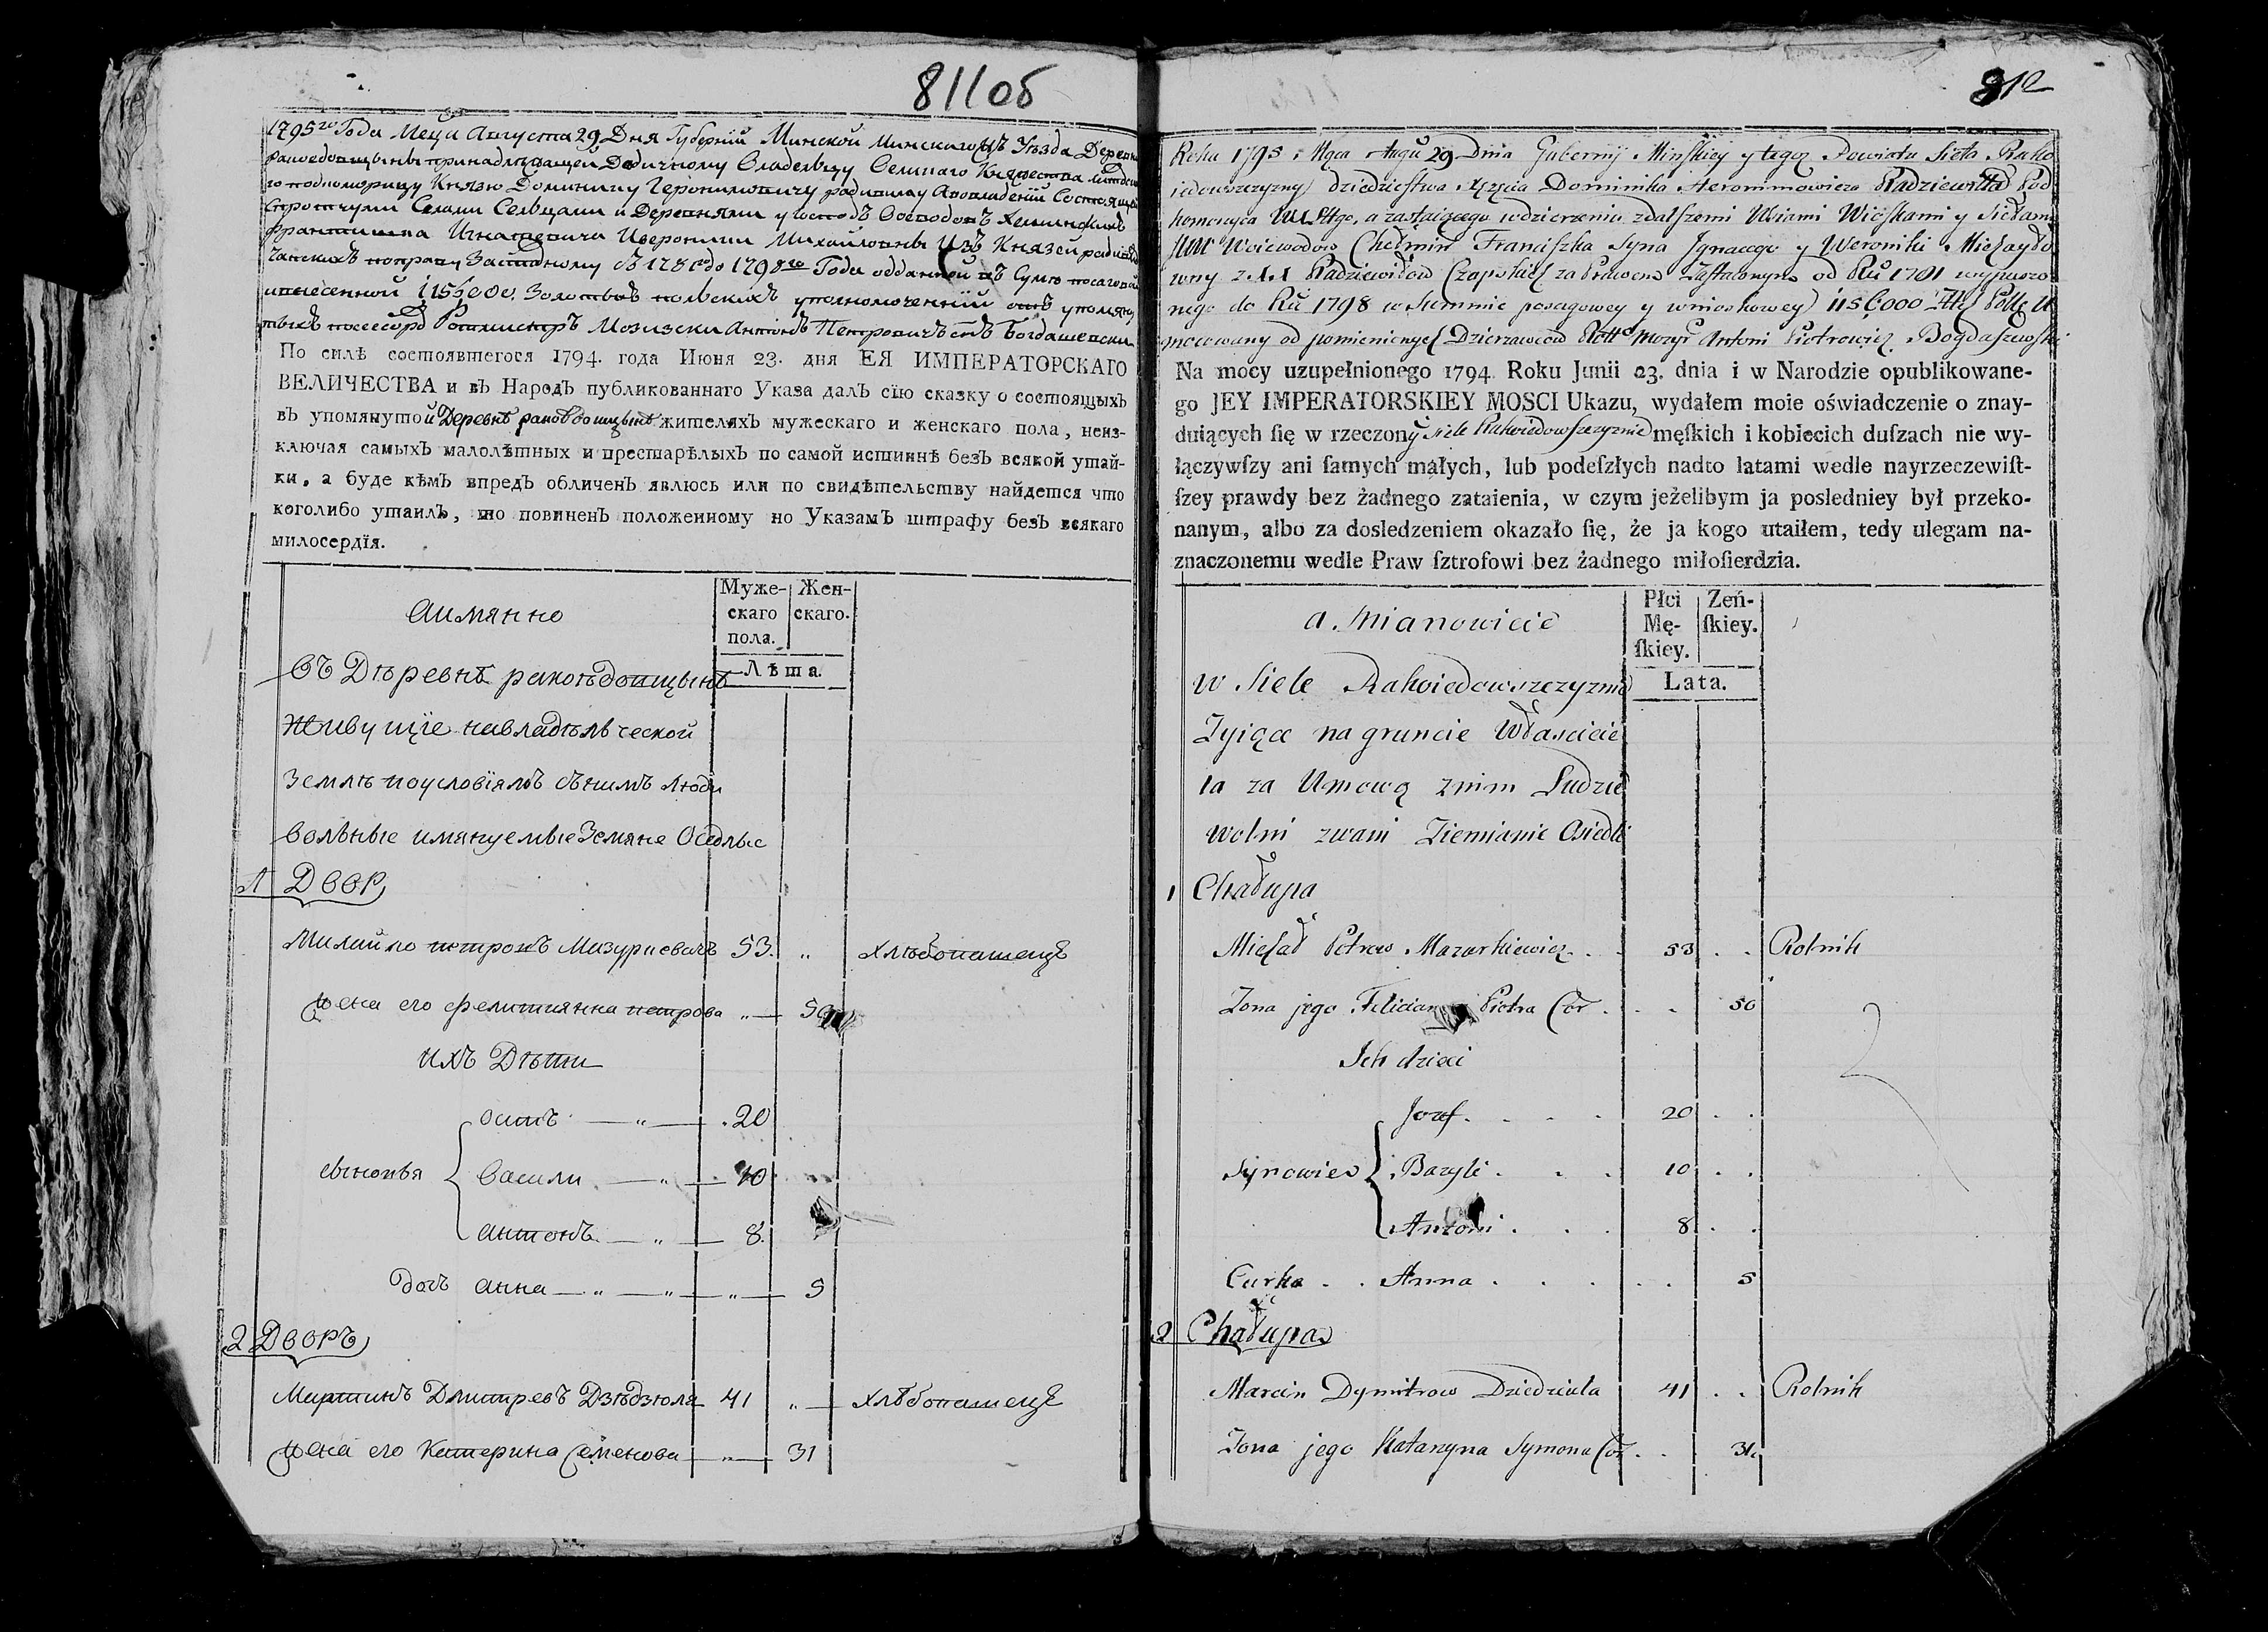 811об
1795го Года Меца Августа 29 Дня Губерніи Минской Минскаго Уѣзда Деревни
раковедовщызны принадлѣжащей Дедичному Владельцу Великаго Княжества Литовска
го подкоморицу Князю Доминику Героnимовичу радивилу Авовладеніи Состоящей
Спротчими Селами Сельцами и Деревнями у Господъ Воеводовъ Хелминскихъ
Франтишка Игнатевича Ивероники Михайловны Изъ Князей радивиловъ
Чапскихъ поправу Заставному съ 1781го до 1798го Года отданной въ Суме посаговой
ивнесенной 1156000. Золотыхъ польскихъ уполномоченній отъ упомяну
тыхъ посесоровъ Ротмистръ Мозирски Антонъ Петровичъ Богдашевски
По силѣ состоявшегося 1794. года Июня 23. дня ЕЯ ИМПЕРАТОРСКАГО
ВЕЛИЧЕСТВА и въ Народъ публикованнаго Указа далъ сїю сказку о состоящыхъ
въ упомянутой Деревнѣ раковѣдовщызнѣ жителяхъ мужескаго и женскаго пола, неиз-
ключая самыхъ малолѣтныхъ и престарѣлыхъ по самой истиннѣ безъ всякой утай-
ки, а буде кѣмъ впредъ обличенъ явлюсь или по свидѣтельству найдется что
коголибо утаилъ, то повиненъ положенному по Указамъ штрафу безъ всякаго
милосердїя.
Аимянно
Муже-
скаго
пола.
Жен-
скаго.
Лѣта.
Въ Дѣревнѣ раковѣдовщызнѣ
Живущіе навладѣльческой
Землѣ поусловіямъ сънимъ люди
Вольные имянуемые Земяне Оседлые
1 Двор
Михайло петровъ Мазуркевичъ 53. „ хлѣбопашецъ
Жена его фелитиянна петрова „ 50
ихъ Дѣти
осипъ „ 20
сыновья Васили „ 10
антонъ „ 8.
дочъ анна „ „ „ 5
2 Дворъ
Мартинъ Дмитревъ Дзѣдзюля 41 „ хлѣбопашецъ
Жена его Катерина Семенова „ 31
812
Roku 1795 Mca Augũ 29 Dnia Gubernij Minskiey y tegoz Powiatu Sieła Rako
iedowszczyzny dziedzictwa Xzęcia Dominika Hieronimowicza Radziewiłła Pod
komorzyca WXLttgo, a zastaiącego wdzierzeniu zdalszemi Wsiami Wioskami y Siełami
JWW Woiewodow Chełmin Franciszka Syna Ignacego y Weroniki Michayło
wny z XX Radziewiłow Czapskich za Prawem Zastawnym od Rũ 1781 wypuszczo
nego do Rũ 1798 w Summie posagowey y wnioskowey 1156000 Złł Pollč U
mocowany od pomienionych Dzierzawcow Rottm Mozyr Antoni Piotrowicz Bogdaszewski
Na mocy uzupełnionego 1794 Roku Junii 23. dnia i w Narodzie opublikowane-
go JEY IMPERATORSKIEY MOSCI Ukazu, wydałem moie oświadczenie o znay-
duiących ſię w rzeczoney Siele Rakwiedowszczyznie męſkich i kobiecich duſzach nie wy-
łączywſzy ani ſamych małych, lub podeſzłych nadto latami wedle nayrzeczewiſt-
ſzey prawdy bez żadnego zataienia, w czym jeżelibym ja posledniey był przeko-
nanym, albo za dosledzeniem okazało ſię, że ja kogo utaiłem, tedy ulegam na-
znaczonemu wedle Praw ſztrofowi bez żadnego miłoſierdzia.
a Mianowicie
Płci
Mę-
ſkiey.
Zeń-
ſkiey.
Lata.
w Siele Rakwiedowszczyznie
Zyiące na gruncie Właściciе
la za Umową znim Ludzie
wolni zwani Ziemianie Osiedli
1 Chałupa
Michał Potrow Mazurkiewicz . . 53 . . Rolnik
Zona jego Feliciana Piotra Cor . . . 50
Ich dzieci
Jozef . . . . 20 . .
Synowie Bazyli . . . 10 . .
Antoni . . . 8 . .
Curka . . Anna . . . . . 5
2 Chałupa
Marcin Dymitrow Dziedziula 41 . . Rolnik
Zona jego Katarzyna Symona Cor . . 31.